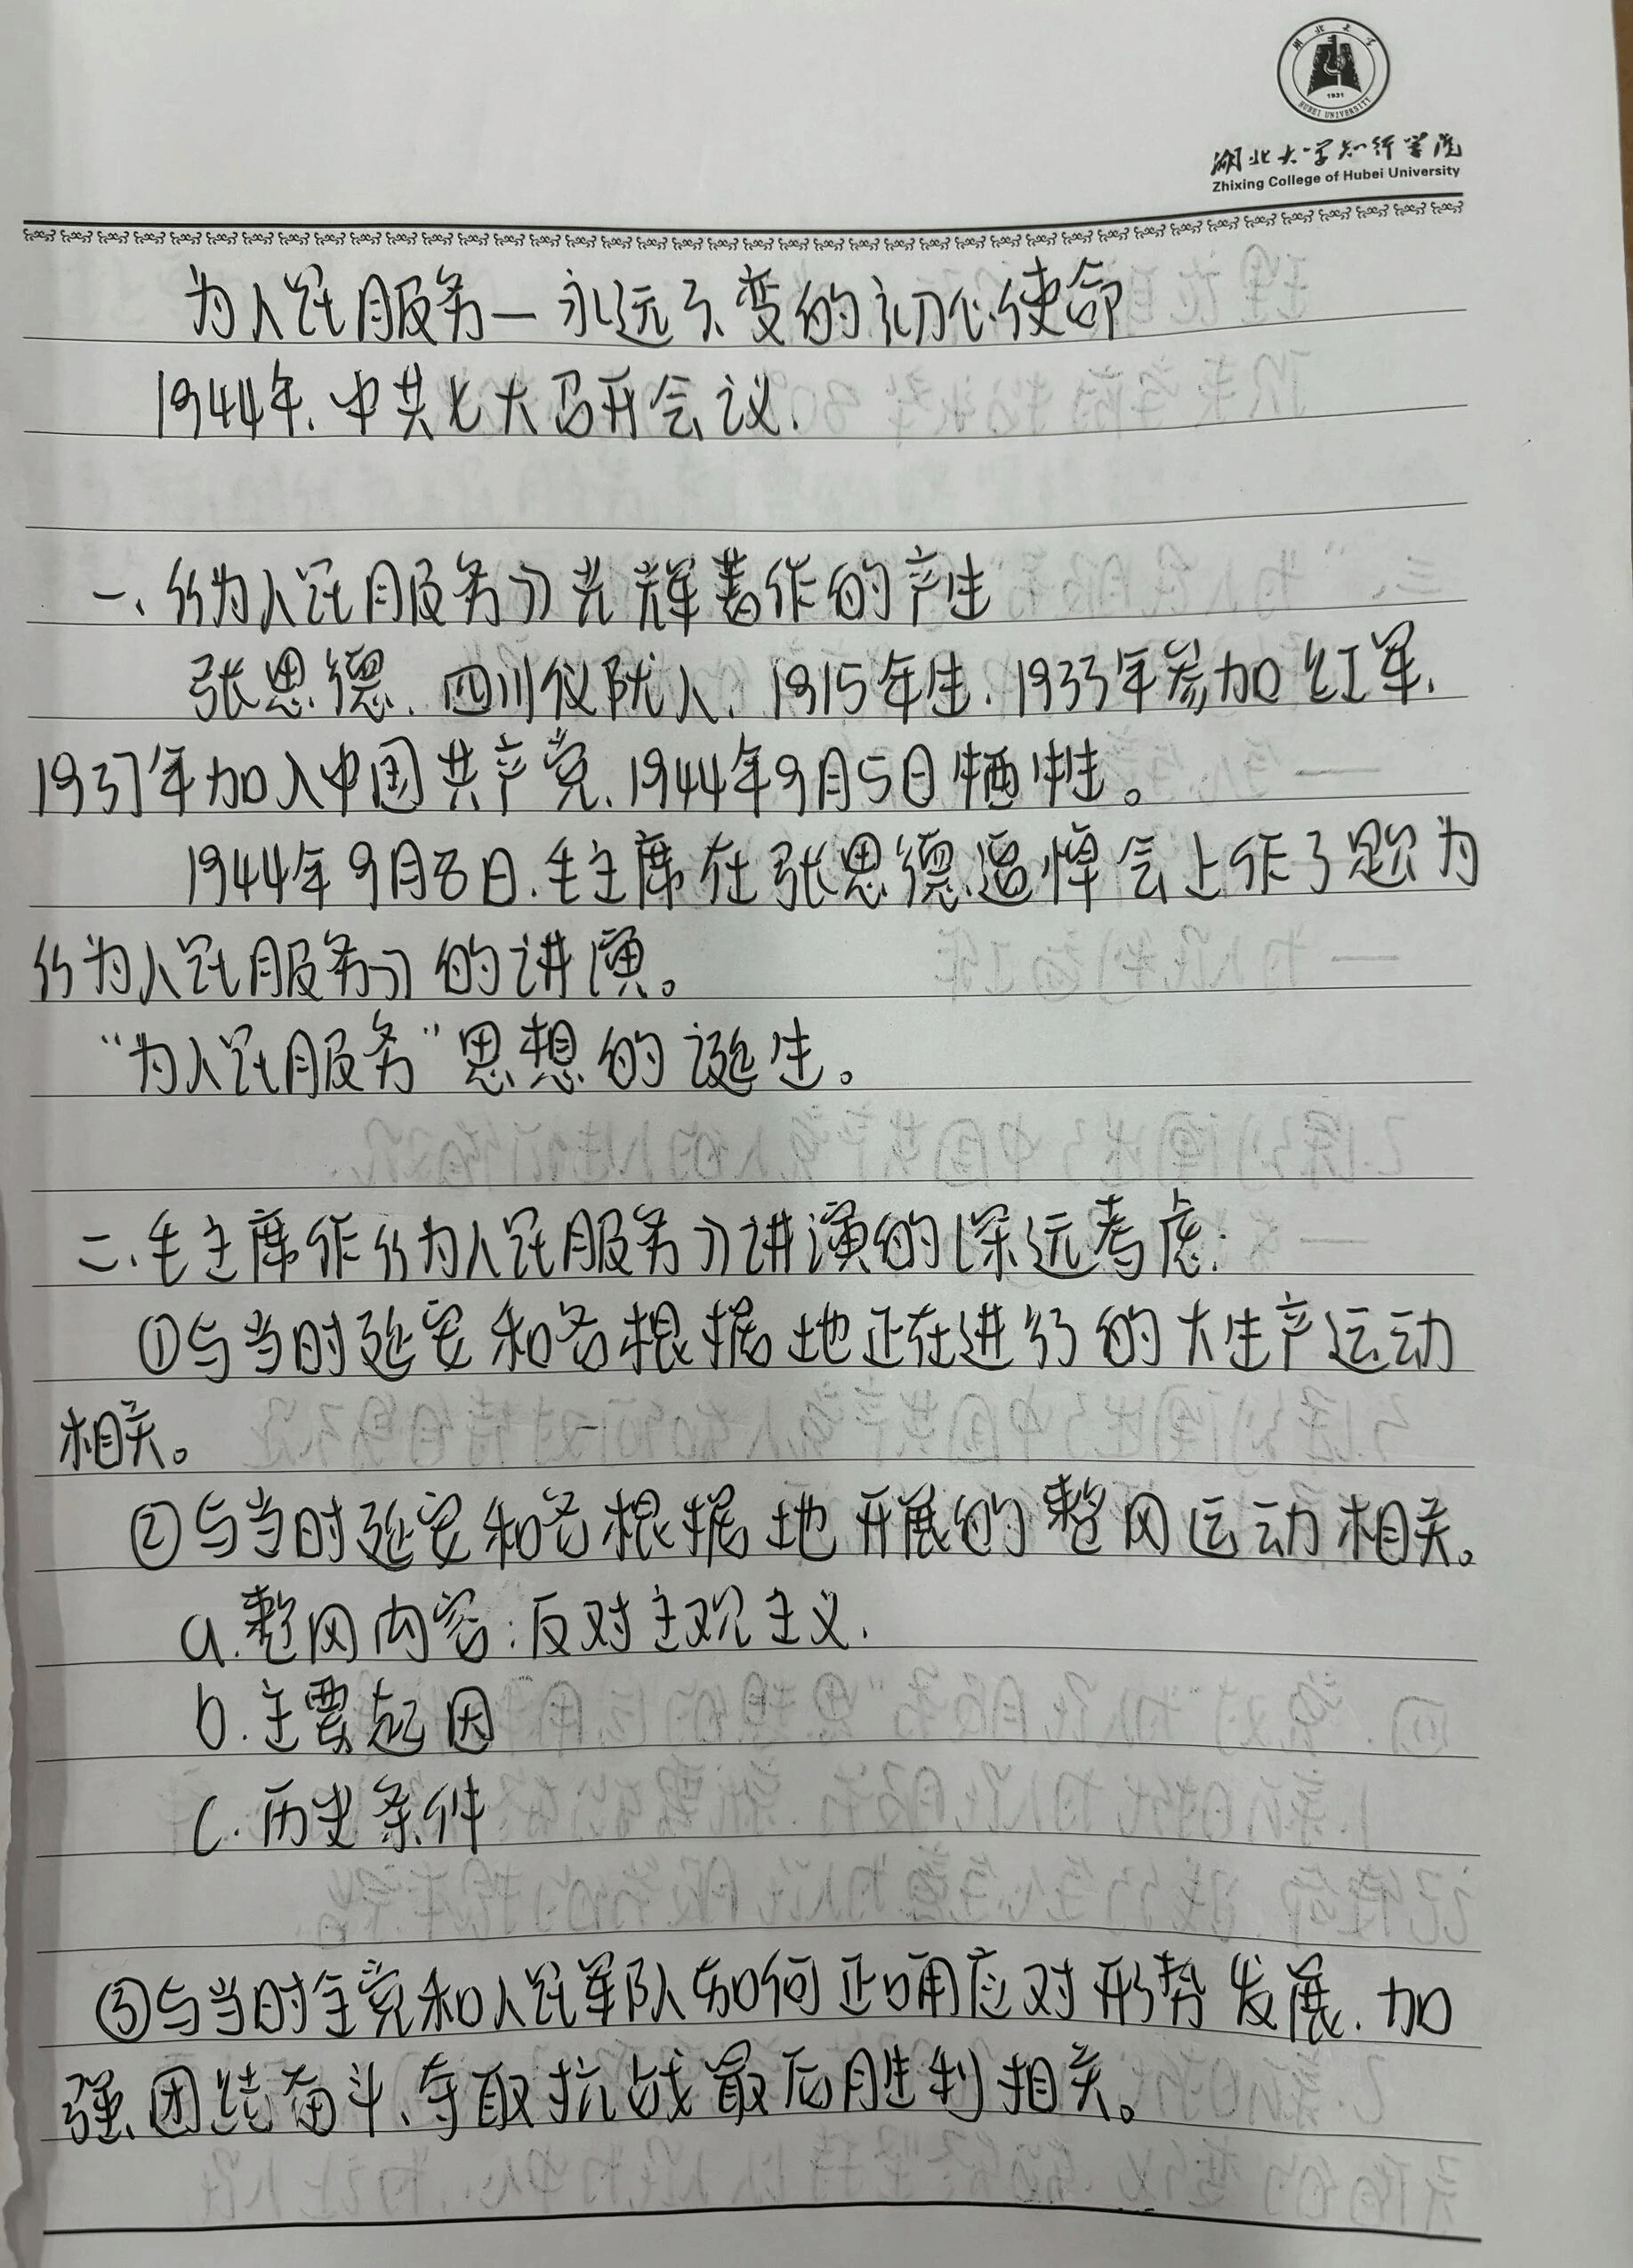 湖北大学
1931
HUBEI UNIVERSITY
湖北大学知行学院
Zhixing College of Hubei University
为人民服务—永远不变的初心使命
1944年.中共七大召开会议.
一、《为人民服务》光辉著作的产生
张思德.四川仪陇人.1915年生.1933年参加红军.
1937年加入中国共产党.1944年9月5日牺牲。
1944年9月8日.毛主席在张思德追悼会上作了题为
《为人民服务》的讲演。
“为人民服务”思想的诞生。
二.毛主席作《为人民服务》讲演的深远考虑:
①与当时延安和各根据地正在进行的大生产运动
相关。
②与当时延安和各根据地开展的整风运动相关。
a.整风内容:反对主观主义.
b.主要起因
c.历史条件
③与当时全党和人民军队如何正确应对形势发展.加
强团结奋斗、夺取抗战最后胜利相关。